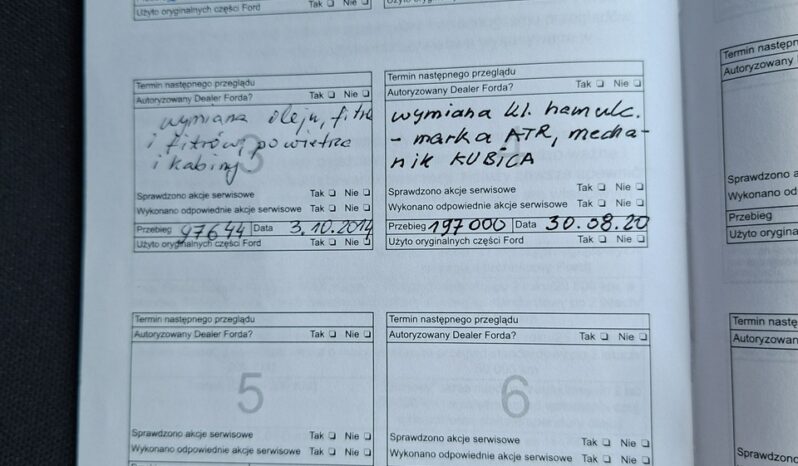 Użyto oryginalnych części Ford Tak ❑ Nie ❑
Termin następnego przeglądu
Autoryzowany Dealer Forda? Tak ❑ Nie ❑
wymiana oleju, filtra
i filtrów, powietrza
i kabiny
3
Sprawdzono akcje serwisowe Tak ❑ Nie ❑
Wykonano odpowiednie akcje serwisowe Tak ❑ Nie ❑
Przebieg 97644 Data 3.10.2014
Użyto oryginalnych części Ford Tak ❑ Nie ❑
Termin następnego przeglądu
Autoryzowany Dealer Forda? Tak ❑ Nie ❑
wymiana kl. hamulc.
- marka ATR, mecha-
nik KUBICA
Sprawdzono akcje serwisowe Tak ❑ Nie ❑
Wykonano odpowiednie akcje serwisowe Tak ❑ Nie ❑
Przebieg 197000 Data 30.08.20
Użyto oryginalnych części Ford Tak ❑ Nie ❑
Termin następnego przeglądu
Autoryzowany Dealer Forda? Tak ❑ Nie ❑
5
Sprawdzono akcje serwisowe Tak ❑ Nie ❑
Wykonano odpowiednie akcje serwisowe Tak ❑ Nie ❑
Termin następnego przeglądu
Autoryzowany Dealer Forda? Tak ❑ Nie ❑
6
Sprawdzono akcje serwisowe Tak ❑ Nie ❑
Wykonano odpowiednie akcje serwisowe Tak ❑ Nie ❑
Termin następn
Autoryzowany
Sprawdzono a
Wykonano od
Przebieg
Użyto orygina
Termin nastę
Autoryzowan
Sprawdzono
Wykonano